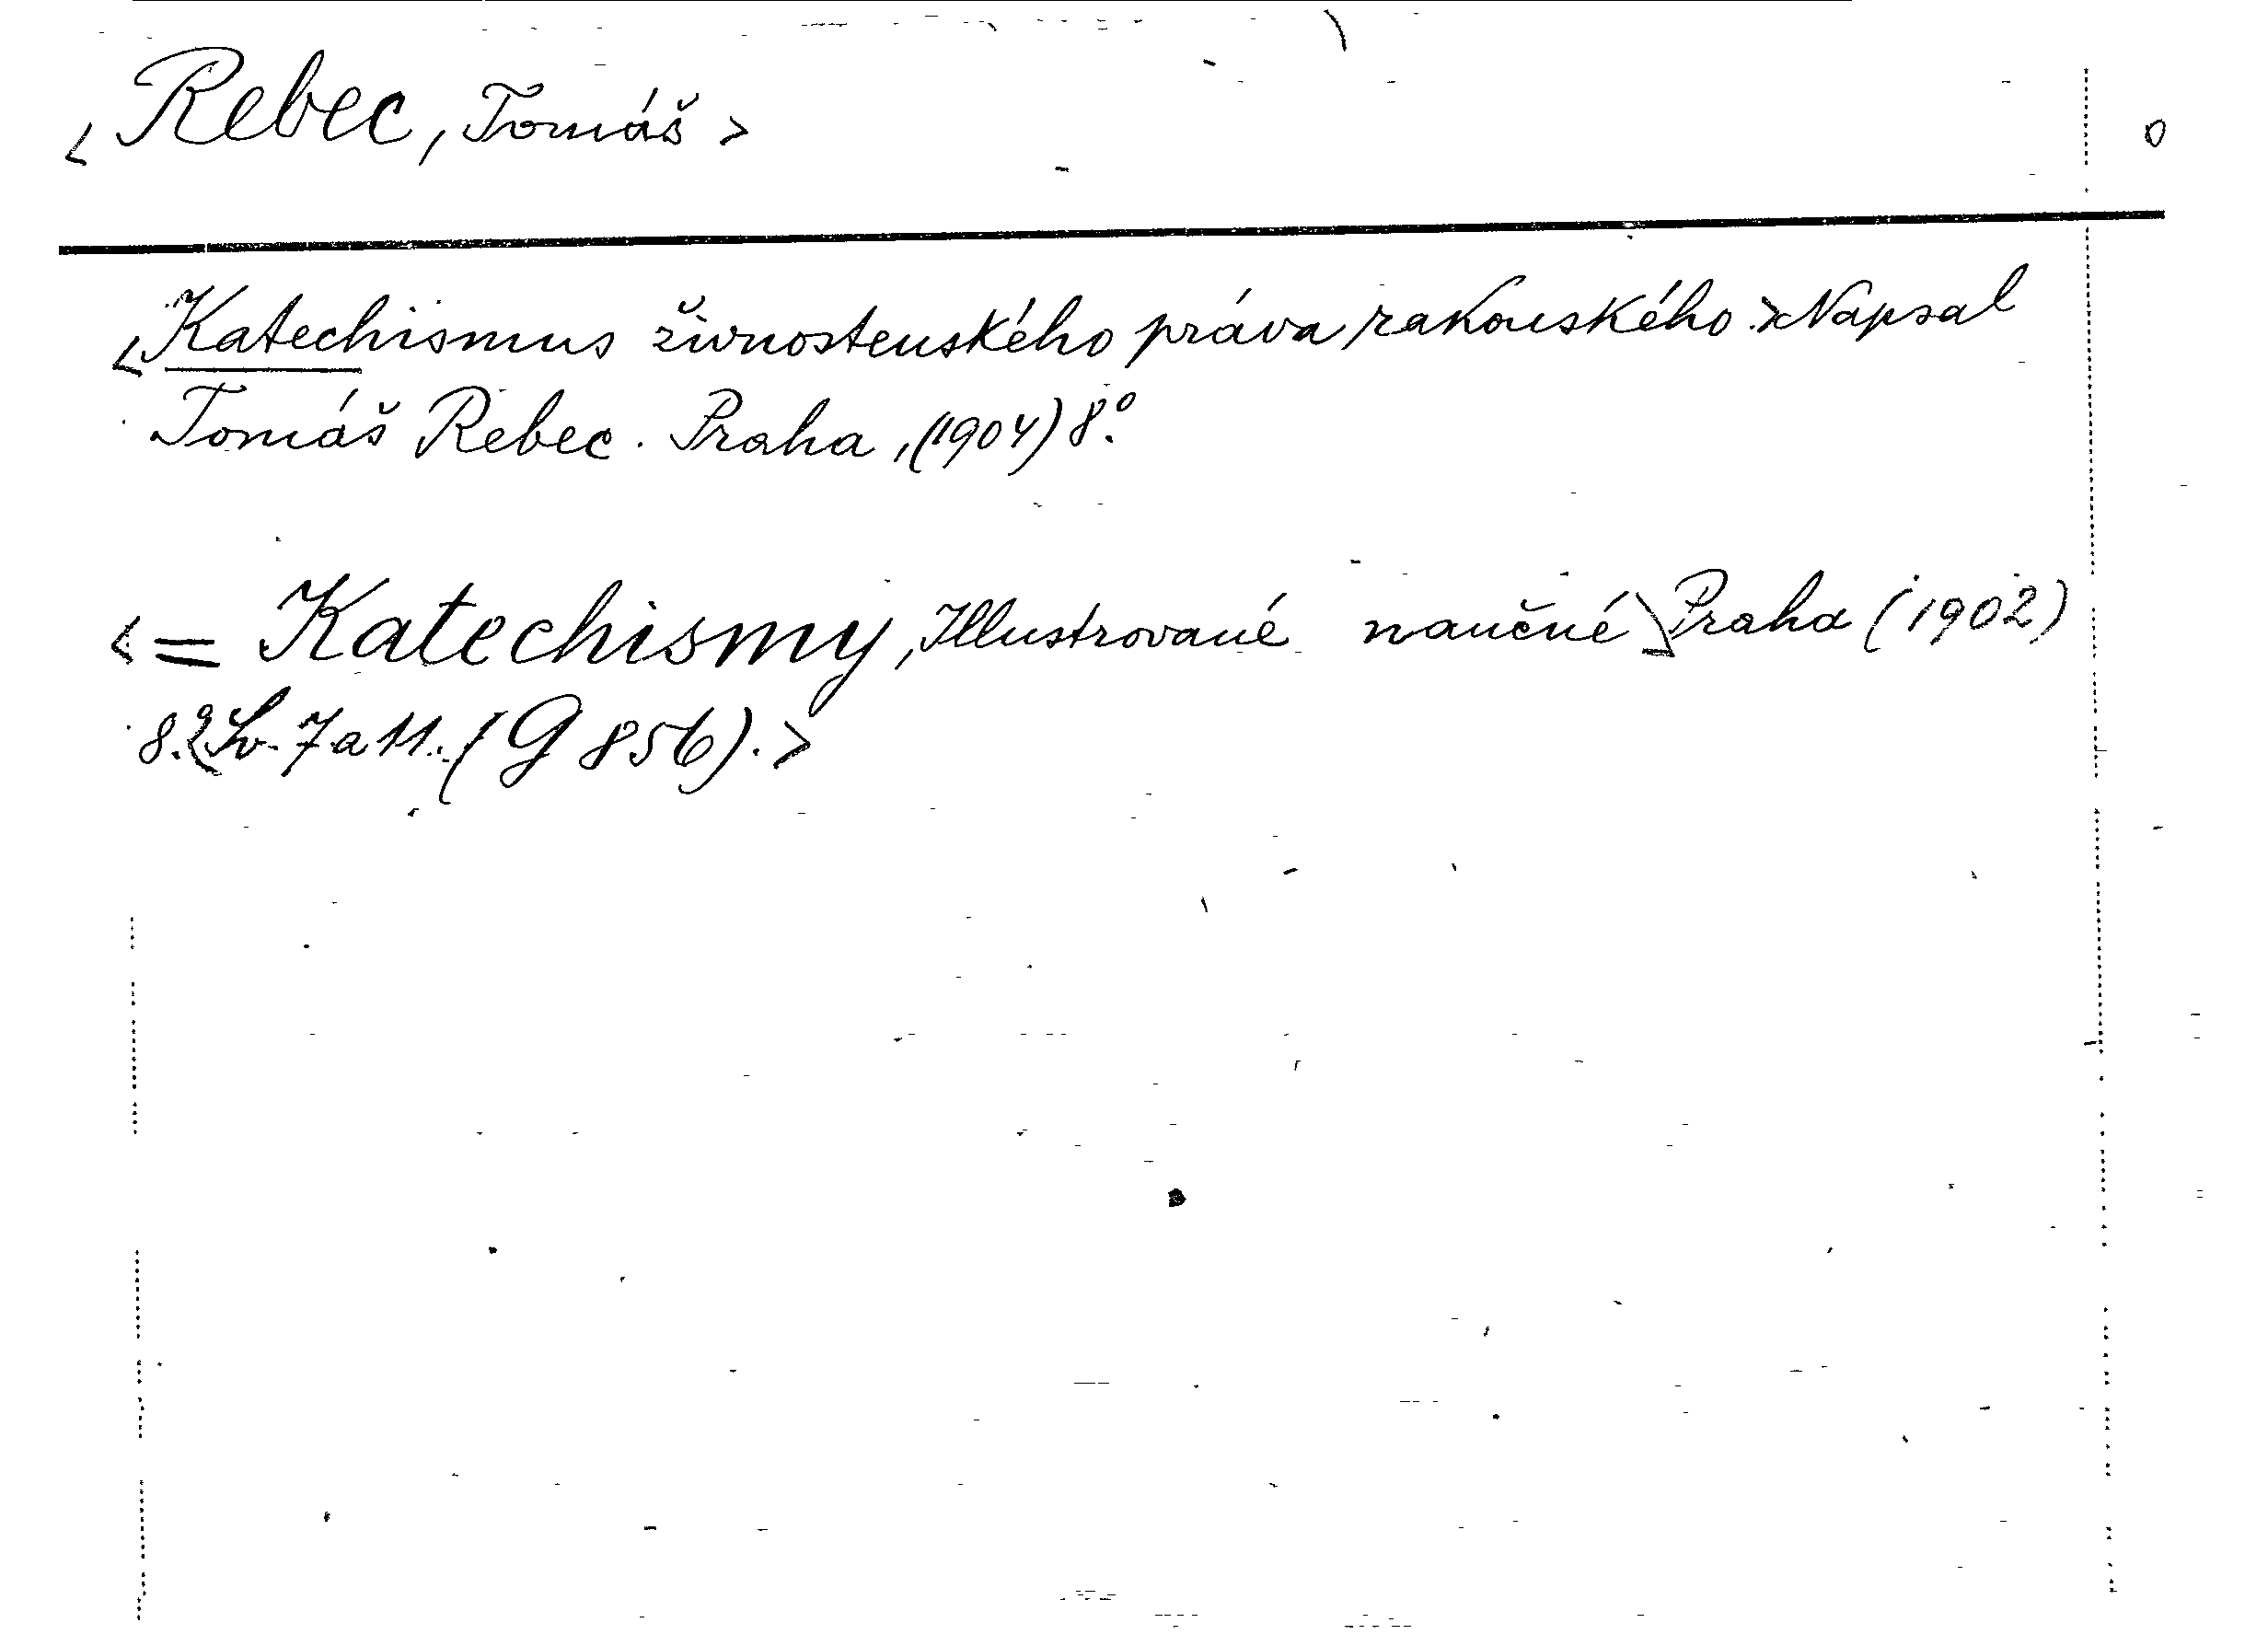 <Rebec, Tomáš>
<Katechismus živnostenského práva rakouského.> Napsal
Tomáš Rebec. Praha, (1904) 8.°
<= Katechismy, Illustrované naučné> Praha (1902)
8.° Sv. 7 a 11. (G 856).>